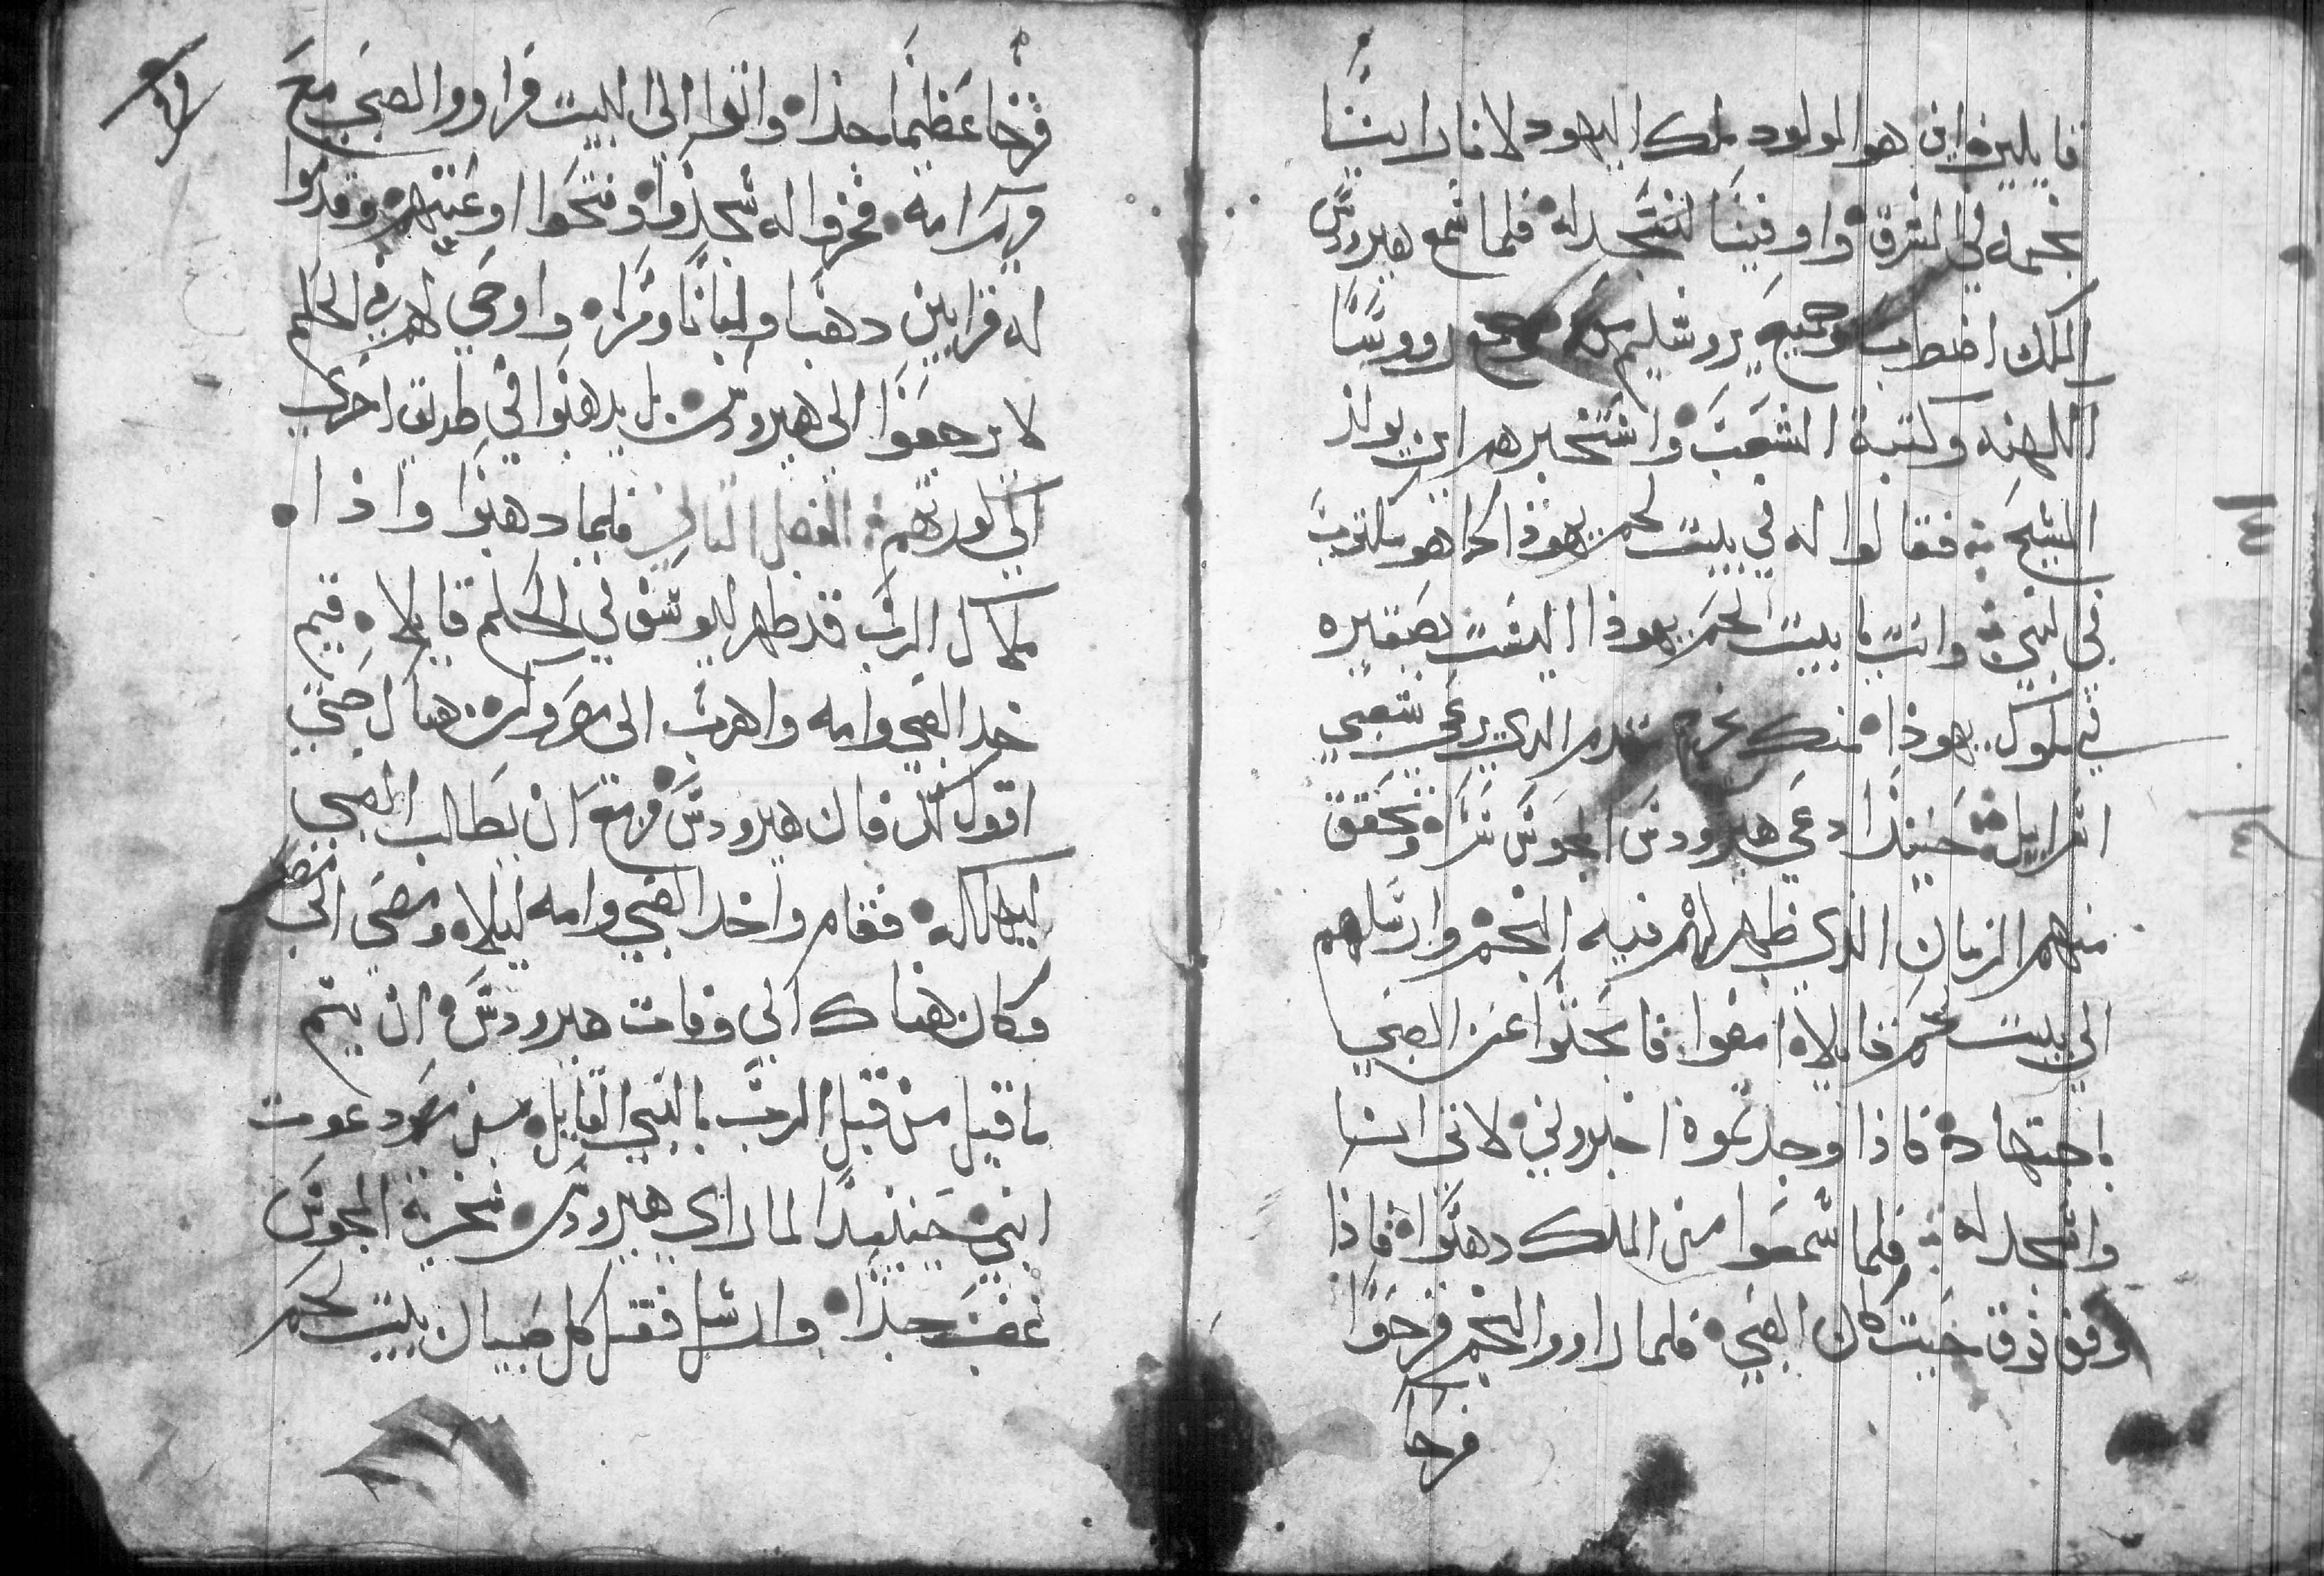 قايلين اين هو المولود ملك اليهود لاننا راينا
نجمه في المشرق واوفينا لنسجد له فلما سمع هيرودس
الملك اضطرب وجميع يروشليم وجمع رووسا
الكهنه وكتبة الشعب واستخبرهم اين يولد
المسيح فقالوا له في بيت لحم يهودا كما هو مكتوب
في النبي وانت يا بيت لحم يهودا اليست بصغيره
في ملوك يهودا منك يخرج مقدم الذي يرعى شعبي
اسراييل حينيذا دعي هيرودس المجوس سرا وتحقق
منهم الزمان الذي ظهر لهم فيه النجم وارسلهم
الي بيت لحم قايلا امضوا فابحثوا عن الصبي
باجتهاد فاذا وجدتموه اخبروني لاتي انا
واسجد له فلما سمعوا من الملك دهبوا فاذا
وقف فوق حيت كان الصبي فلما راووا النجم فرحوا
فرحا
فرحا عظيما جدا واتوا الى البيت فراووا الصبي مع
مريم امه فخروا له سجدوا وفتحوا اوعيتهم وقدموا
له قرابين دهبا ولبانا ومرا واوحي لهم في الحلم
لا يرجعوا الى هيرودس بل يدهبوا في طريق اخرى
الى كورتهم الفصل التالت فلما دهبوا واذا
ملاك الرب قد ظهر ليوسف في الحلم قايلا قم
خد الصبي وامه واهرب الى مصر وكن هناك حتى
اقول لك فان هيرودس مزمع ان يطالب الصبي
ليهلكه فقام واخد الصبي وامه ليلا ومضي الى مصر
فكان هناك الي وفات هيرودس ان يتم
ما قيل من قبل الرب بالنبي القايل من مصر دعوت
ابني حينيذا لما راي هيرودس سخرية المجوس
غضب جدا وارسل فقتل كل صبيان بيت لحم